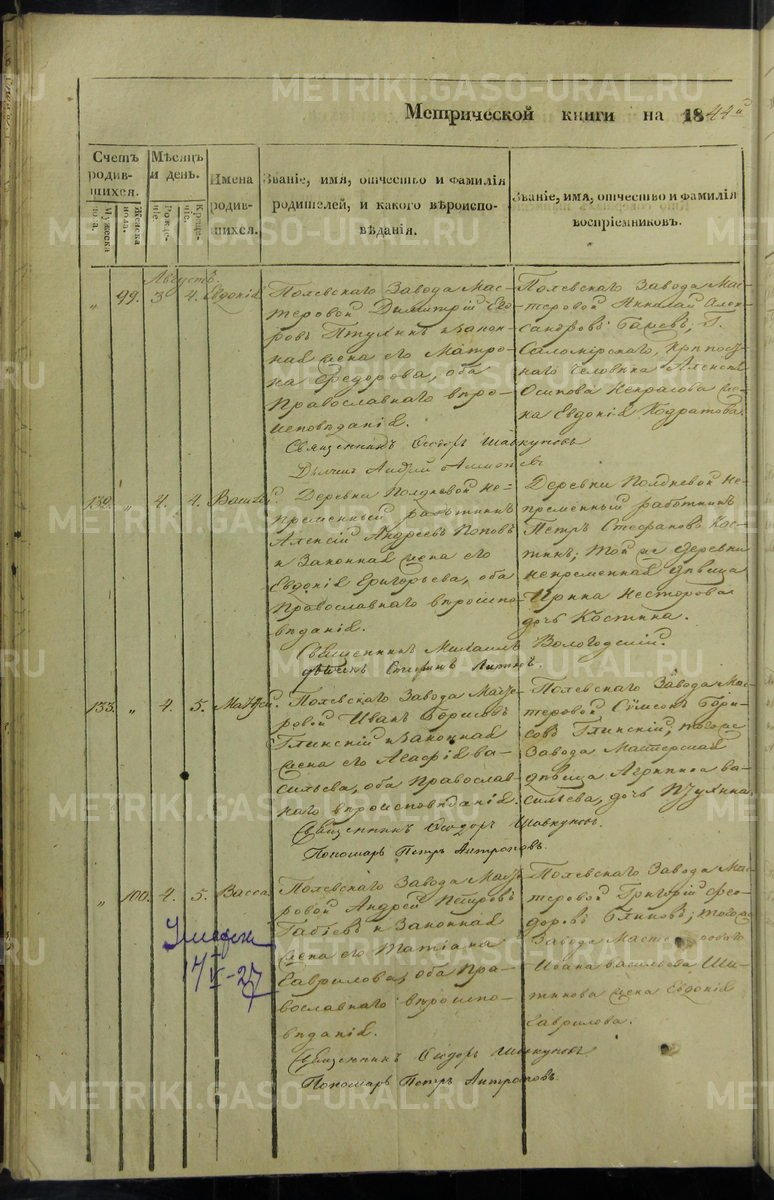 METRIKI.GASO-URAL.RU
Метрической книги на 1844й
Счетъ родив-шихся.
Мужеска пола.
Женска пола.
Мѣсяцъ и день.
Рожде-ніе.
Креще-ніе.
Имена родив-шихся.
Званіе, имя, отчество и фамилія
родителей, и какого вѣроиспо-
вѣданія.
Званіе, имя, отчество и фамилія
воспріемниковъ.
Августъ.
„ 99. 3 4. Евдокія
Полевскаго Завода Мас-
теровой Димитрій Его-
ровъ Птухинъ и закон-
ная жена его Матро-
на Ѳедорова, оба
Православнаго вѣро-
исповѣданія.
Священникъ Ѳеодоръ Шавкуновъ
Полевскаго Завода Мас-
теровой Николай Алек-
сандровъ
человѣка Алексѣя
Осипова Некрасова же-
на Евдокія Кодратова.
132. „ 4. 4. Василій.
Деревни Полдневой не-
премѣнный работникъ
Алексій Андреевъ Поповъ
и Законная жена его
Евдокія Григорьева, оба
Православнаго вѣроиспо-
вѣданія.
Священникъ Михаилъ Вологодскій.
Деревни Полдневой не-
премѣнный работникъ
Петръ Стефановъ Кос-
тинъ; той же деревни
непремѣнная дѣвица
Ирина Несторова
дочь Костина.
133. „ 4. 5. Матѳей.
Полевскаго Завода Масте-
ровой Иванъ Борисовъ
Глинскій и Законная
жена его Агафія Ва-
сильева, оба Православ-
наго вѣроисповѣданія.
Священникъ Ѳеодоръ Шавкуновъ.
Пономарь Петръ Антроповъ.
Полевскаго Завода Мас-
теровой Сѵмеонъ Бори-
совъ Глинскій; тогоже
Завода Мастерская
дѣвица Агрипина Ва-
сильева, дочь
„ 100. 4. 5. Васса
Полевскаго Завода Масте-
ровой Андрей Петровъ
и Законная
жена его Татіана
Гаврилова, оба Пра-
вославнаго вѣроиспо-
вѣданія.
Священникъ Ѳеодоръ Шавкуновъ
Пономарь Петръ Антроповъ.
Полевскаго Завода Мас-
теровой Григорій Ѳео-
доровъ тогоже
Завода
Ивана Васильева
жена Евдокія
Гаврилова.
17/V-27